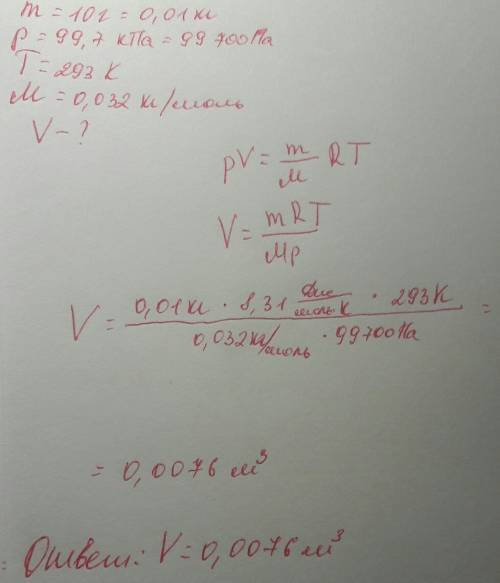 m = 10г = 0,01 кг
p = 99,7 кПа = 99700 Па
T = 293 К
M = 0,032 кг/моль
V - ?
pV = m/M RT
V = mRT/Mp
V = 0,01кг · 8,31 Дж/моль·К · 293К / 0,032кг/моль · 99700 Па =
= 0,0076 м³
Ответ: V = 0,0076 м³